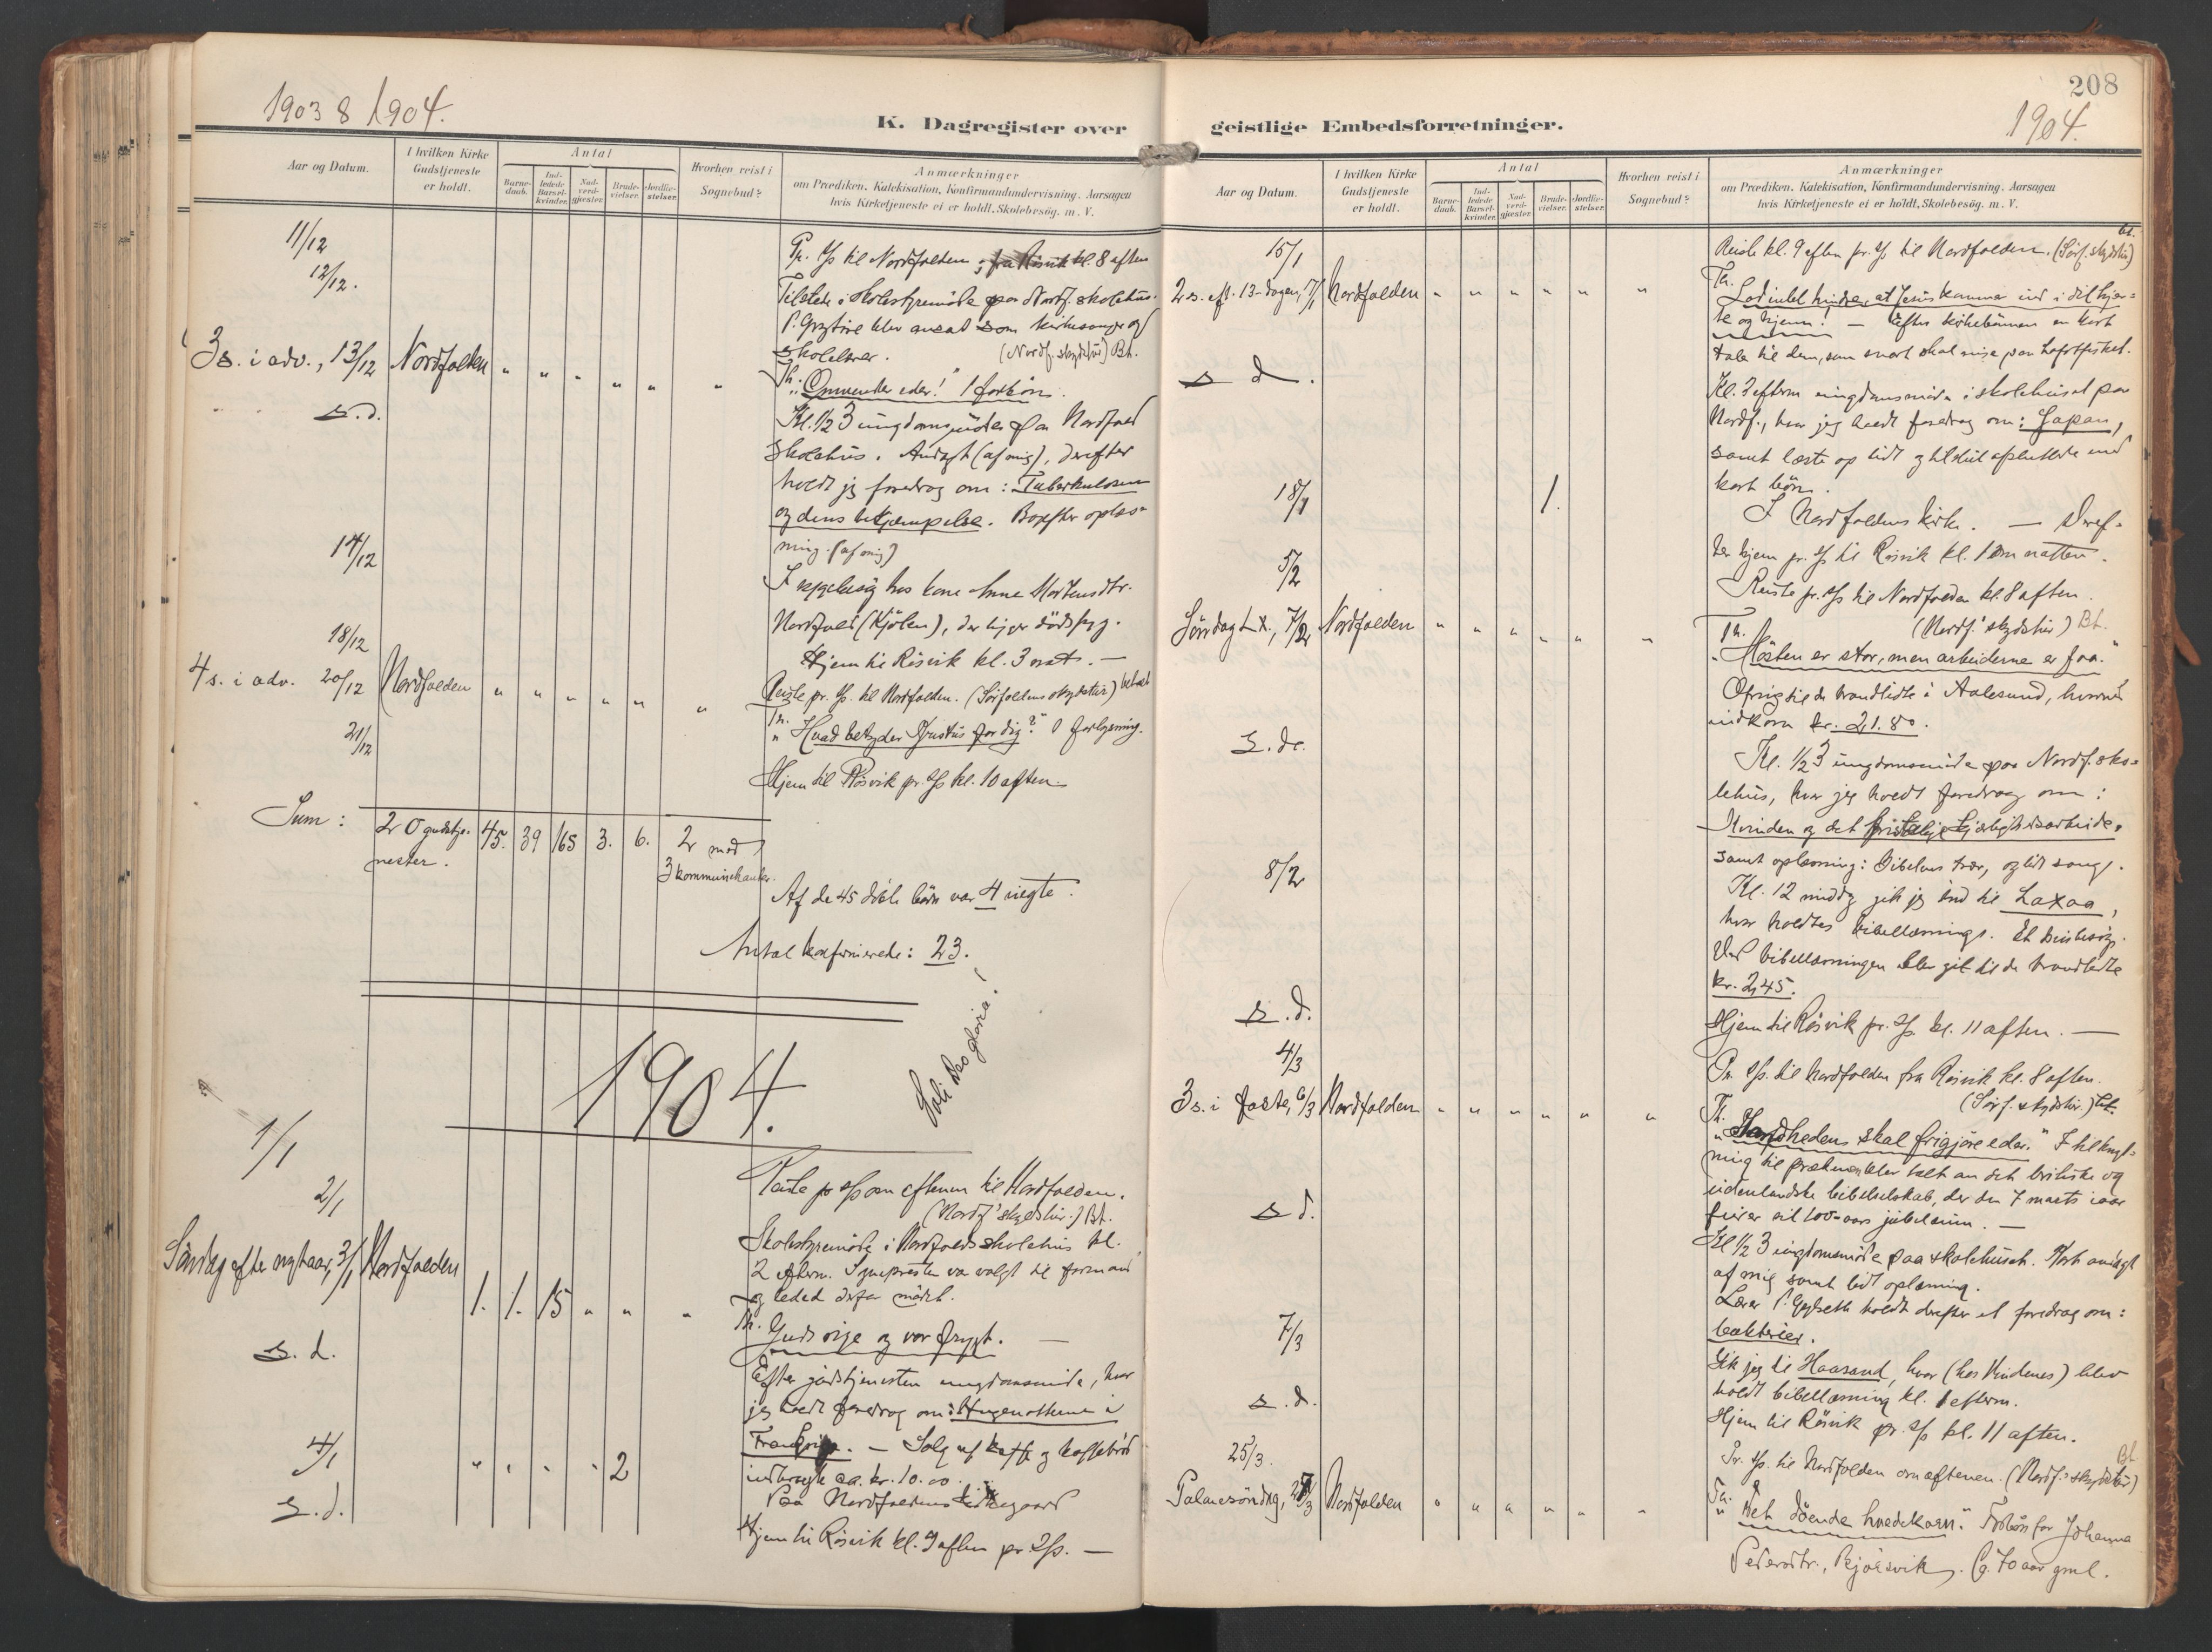 1903 & 1904.
K. Dagregister over
Aar og Datum.
I hvilken Kirke
Gudstjeneste
er holdt.
Antal
Barne-
daab.
Ind-
ledede
Barsel-
kvinder.
Nad-
verd-
gjæster.
Brude-
vielser.
Jordfæ-
stelser.
Hvorhen reist i
Sognebud?
Anmærkninger
om Prædiken, Katekisation, Konfirmandundervisning, Aarsagen
hvis Kirketjeneste ei er holdt, Skolebesøg. m. V.
11/12
Pr. s/s til Nordfolden, fra Røsvik kl. 8 aften
12/12.
Tilstede i skolestyremøde paa Nordf. skolehus.
blev ansat som kirkesanger og
skolelærer. (Nordf. skydstür) Bt.
3 s. i adv., 13/12 Nordfolden " " " " " "
Th. "Omvender eder!" 1 forbön.
s.d.
Kl. 1/2 3 ungdomsmøde paa Nordfold
skolehus. Andagt (af mig), derefter
holdt jeg foredrag om: Tuberkulosen
og dens bekjæmpelse. oplæs-
ning. (af mig)
14/12
I sygebesøg hos kone Anne Mortensdtr.
Nordfold (Kjölen), der ligger dødssyg.
Hjem til Røsvik kl. 3 nat. —
18/12
Reiste pr. s/s. til Nordfolden. (Sørfoldens skydstür) betalt
4 s. i adv. 20/12 Nordfolden " " " " " "
Th. "Hvad betyder Kristus for dig?" 1 forlysning.
21/12
Hjem til Røsvik pr. s/s kl. 10 aften.
Sum: 20 gudstje-
nester. 45. 39 165 3. 6. 2 med
3 kommunikanter.
Af de 45 döbte börn var 4 uegte.
Antal konfirmerede: 23.
Soli Deo gloria!
1904.
1/1
Reiste pr s/s om eftenen til Nordfolden.
(Nordf.' skydstür.) Bt.
2/1
Skolestyremøde i Nordfolds skolehus kl.
2 efterm. Sognepresten var valgt til formand
og leded derfor mødet.
Søndag efter nytaar, 3/1 Nordfolden 1. 1. 15 " " "
Th. Guds vrje og vor frygt. —
s. d.
Efter gudstjenesten ungdomsmøde, hvor
jeg holdt foredrag om: Hugenotterne i
Frankrige. — Salg af kaffe og kaffebrød
indbragte ca. kr. 10.00.
4/1 " " " " 2
Paa Nordfoldens kirkegaard
s.d.
Hjem til Røsvik kl. 9 aften pr. s/s. —
208
1904.
geistlige Embedsforretninger.
Aar og Datum.
I hvilken Kirke
Gudstjeneste
er holdt.
Antal
Barne-
daab.
Ind-
ledede
Barsel-
kvinder.
Nad-
verd-
gjæster.
Brude-
vielser.
Jordfæ-
stelser.
Hvorhen reist i
Sognebud?
Anmærkninger
om Prædiken, Katekisation, Konfirmandundervisning, Aarsagen
hvis Kirketjeneste ei er holdt, Skolebesøg. m. V.
15/1
Reiste kl. 9 aften pr. s/s til Nordfolden. (Sørf. skydstür) bt.
2 s. eft. 13-dagen, 17/1 Nordfolden " " " " " "
Th.
Lad intet hindre, at Jesus komme ind i dit hjer-
te og hjem! — Efter kirkebønnen en kort
tale til dem, som snart skal reise paa Lofotfisket.
s d.
Kl. 3 efterm ungdomsmøde i skolehuset paa
Nordf., hvor jeg holdt foredrag om: Japan,
samt læste op lidt og til slut afsluttede med
kort bön.
18/1 1.
I Nordfoldens kirke. — Deref-
ter hjem pr. s/s til Røsvik kl. 1 om natten.
5/2
Reiste pr. s/s til Nordfolden kl. 8 aften.
(Nordf.' skydstür) Bt.
Søndag LX., 7/2 Nordfolden " " " " " "
Th.
"Høsten er stor, men arbeiderne er faa."
Ofring til de brandlidte i Aalesund, hvorved
indkom kr. 21.80.
s. d.
Kl. 1/2 3 ungdomsmøde paa Nordf. sko-
lehus, hvor jeg holdt foredrag om:
Kvinden og det kristelige kjærlighedsarbeide,
samt oplæsning: Bibelens trær, og lidt sang.
8/2
Kl. 12 middag gik jeg ind til Laxaa,
hvor holdtes bibellæsning. Et husbesøg.
Ved bibellæsningen blev git til de brandlidte
kr. 2,45.
s.d.
Hjem til Røsvik pr. s/s. kl. 11 aften. —
4/3
Pr. s/s. til Nordfolden fra Røsvik kl. 8 aften.
(Sørf. skydstür.) bt.
3 s. i faste, 6/3 Nordfolden " " " " " "
Th.
"Sandheden skal frigjøre eder." I tilknyt-
ning til prækenen blev talt om det britiske og
udenlandske bibelselskab, der den 7 marts iaar
feirer sit 100-aars jubilæum. —
s d.
Kl 1/2 3 ungdomsmøde paa skolehuset. Kort andagt
af mig samt lidt oplæsning.
Lærer holdt derefter et foredrag om:
bakterier.
7/3
Gik jeg til Haasand, hvor (hos Vindenes) blev
holdt bibellæsning kl. 1 efterm.
s.d.
Hjem til Røsvik pr. s/s kl. 11 aften.
25/3.
Pr. s/s. til Nordfolden om aftenen. (Nordf.' skydstür) Bt
Palmesöndag, 27/3 Nordfolden " " " " " "
Th.
"Det döende hvedekorn." Forbön for Johanna
Pedersdtr., ca. 70 aar gml.